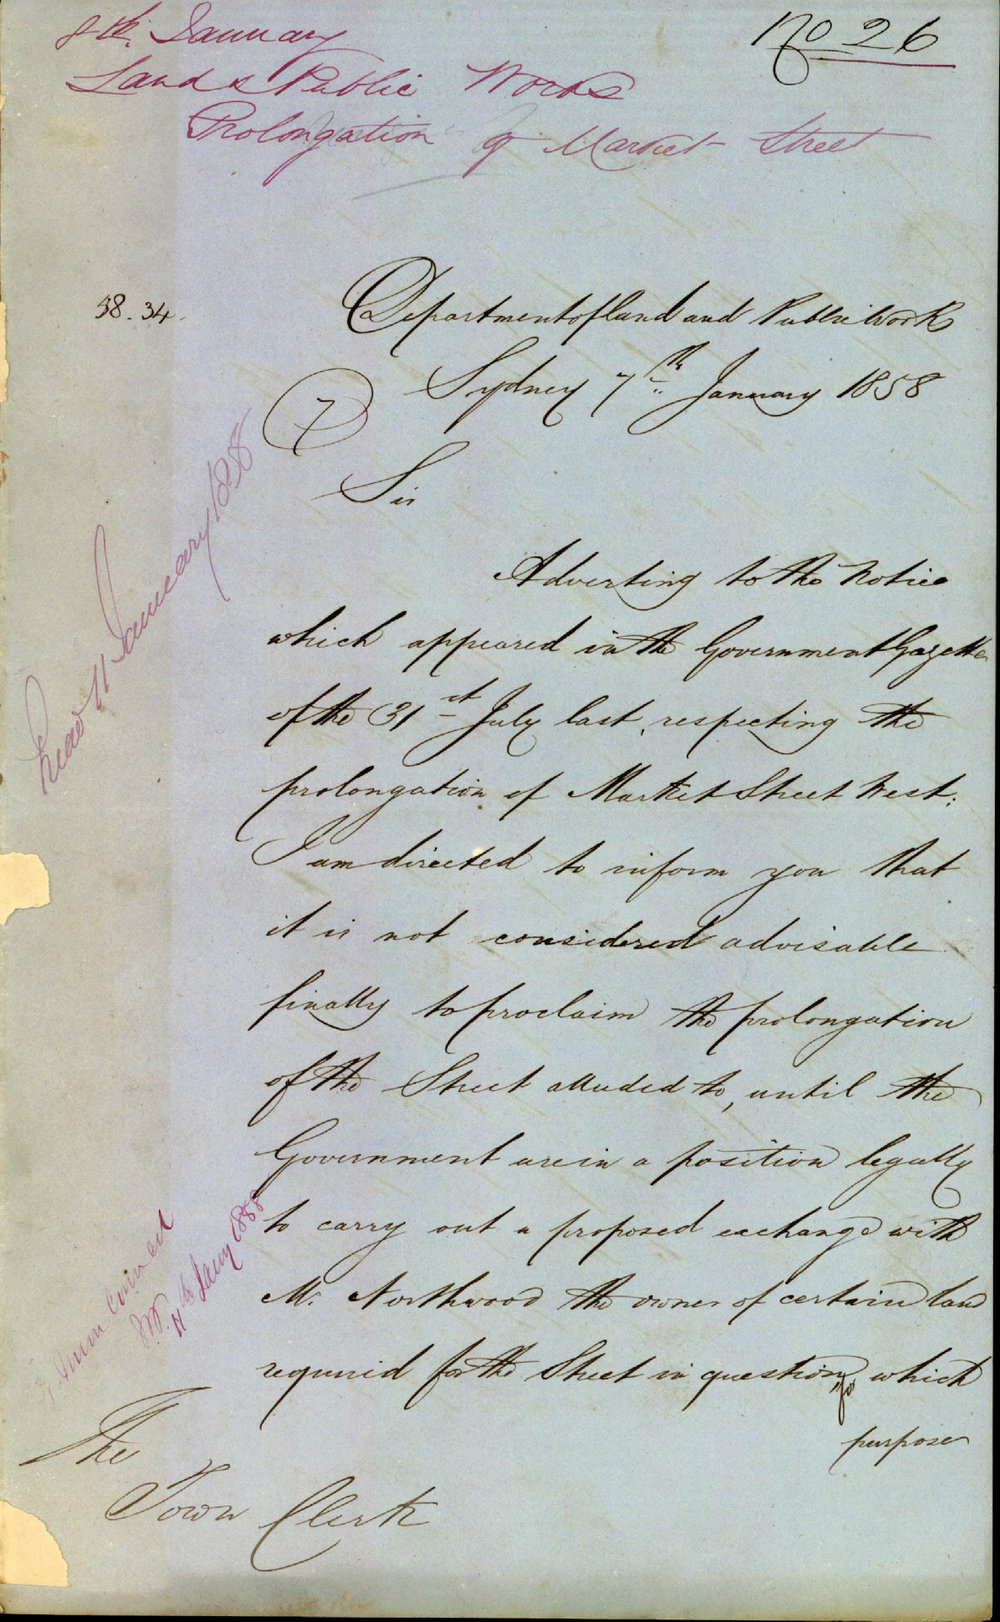 8th. January
Land & Public Works
Prolongation of Market Street
No 26
58.34.
Department of Land and Public Works
Sydney 7th January 1858
7
Sir
Adverting to the Notice
which appeared in the Government Gazette
of the 31st July last, respecting the
prolongation of Market Street West;
I am directed to inform you that
it is not considered advisable
finally to proclaim the prolongation
of the Street alluded to, until the
Government are in a position legally
to carry out a proposed exchange with
Mr. Northwood the owner of certain land
required for the Street in question, for which
purpose
The
Town Clerk
Read 11 January 1858
11th Jany 1858